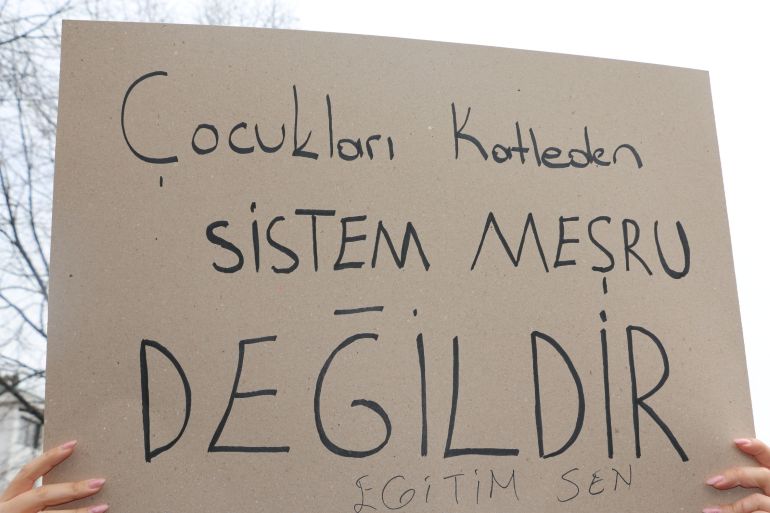 Çocukları Katleden
SİSTEM MEŞRU
DEĞİLDİR
EĞİTİM SEN